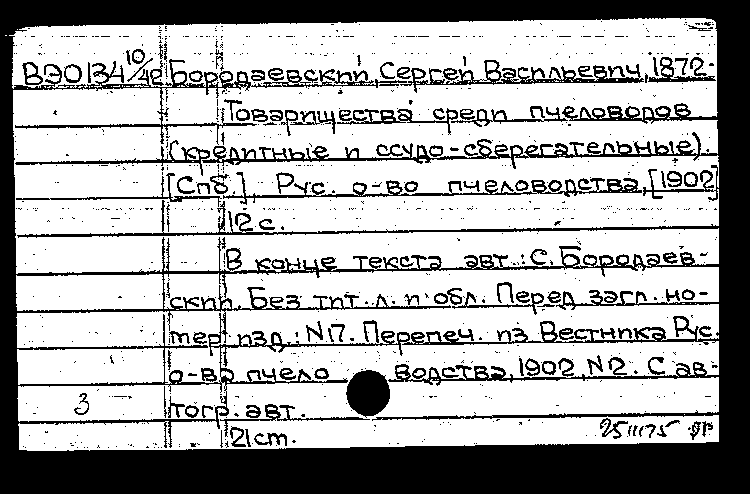 ВЭ0134 10/42 Бородаевский, Сергей Васильевич, 1872-
Товарищества среди пчеловодов
(кредитные и ссудо-сберегательные).
[Спб.], Рус. о-во пчеловодства, [1902]
12 с.
В конце текста авт.: С. Бородаев-
ский. Без тит. л. и обл. Перед загл. но-
мер изд.: N17. Перепеч. из Вестника Рус.
о-ва пчеловодства, 1902, N2. С ав-
3 тогр. авт.
21 cm. 25 III 75